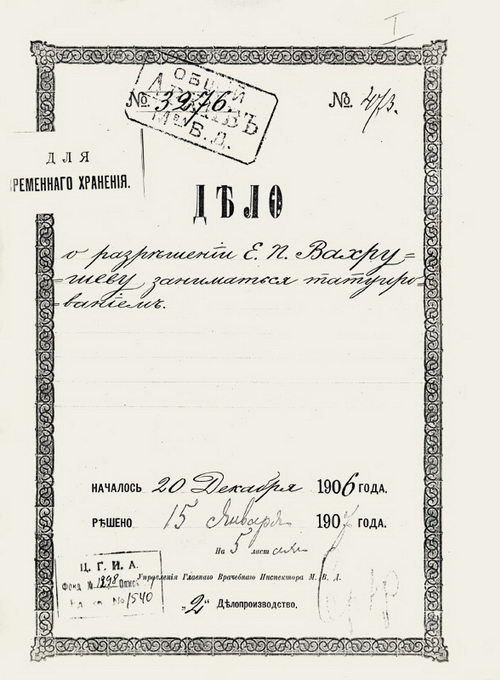 I
ОБЩІЙ
АРХИВЪ
М. В. Д.
№ 3276.
№ 473.
ДЛЯ
ВРЕМЕННАГО ХРАНЕНІЯ.
ДѢЛО
о разрѣшеніи Е. П. Вахру=
=шеву заниматься татуиро=
=ваніемъ.
НАЧАЛОСЬ 20 Декабря 1906 ГОДА.
РѢШЕНО 15 Января 1907 ГОДА.
На 5 листахъ
Управленія Главнаго Врачебнаго Инспектора М. В. Д.
„2" Дѣлопроизводство.
Ц. Г. И. А.
Фонд № 1298 Опись
№ 1540